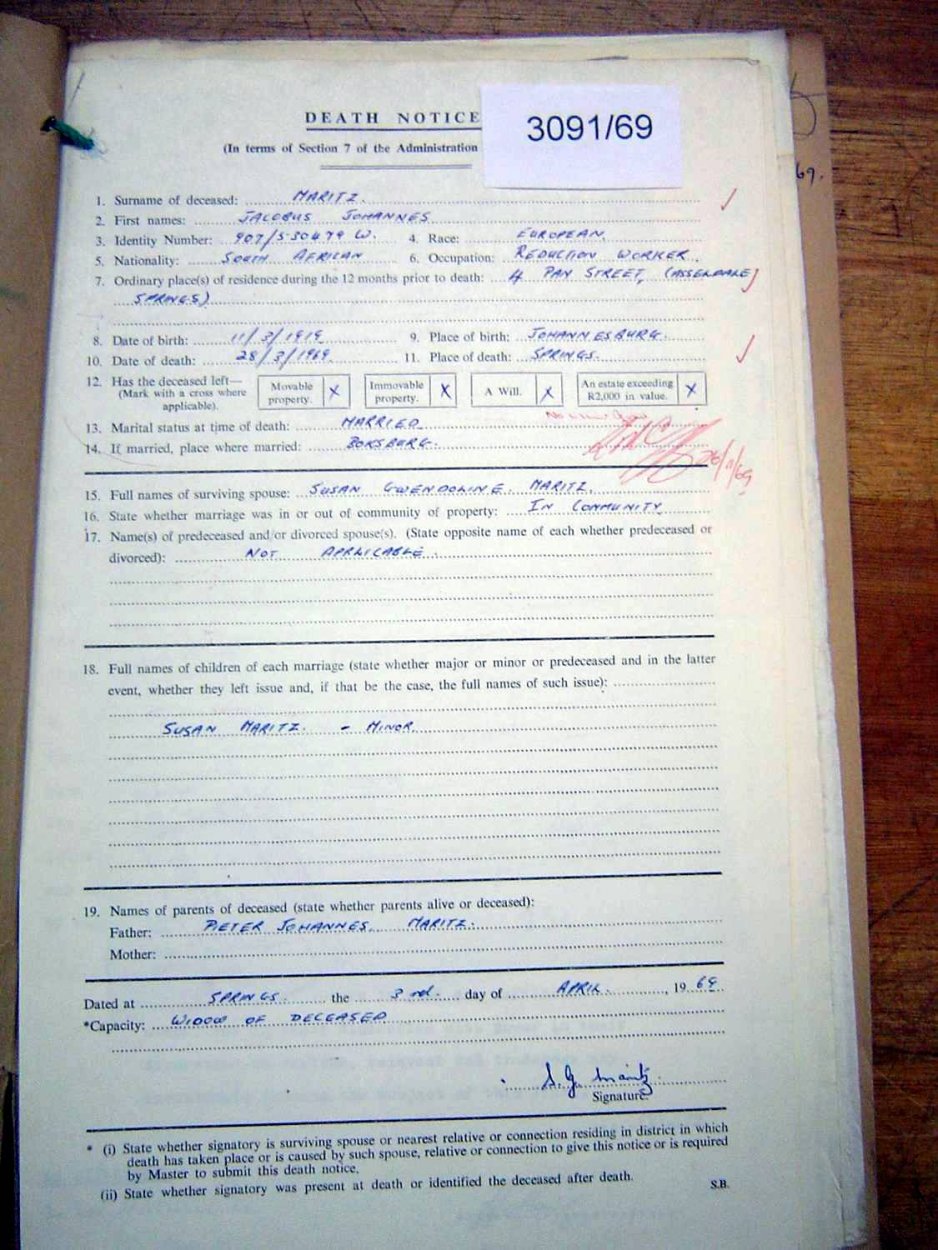 3091/69
DEATH NOTICE
(In terms of Section 7 of the Administration
69.
1. Surname of deceased: MARITZ.
2. First names: JACOBUS JOHANNES
3. Identity Number: 907/530479 W. 4. Race: EUROPEAN.
5. Nationality: SOUTH AFRICAN 6. Occupation: REDUCTION WORKER.
7. Ordinary place(s) of residence during the 12 months prior to death: 4 PAN STREET,
SPRINGS)
8. Date of birth: 11/3/1919 9. Place of birth: JOHANNESBURG.
10. Date of death: 28/3/1969. 11. Place of death: SPRINGS.
12. Has the deceased left— Movable property. X Immovable property. X A Will. X An estate exceeding R2,000 in value. X
(Mark with a cross where
applicable).
13. Marital status at time of death: MARRIED
14. If married, place where married: BOKSBURG.
15. Full names of surviving spouse: SUSAN GWENDOLINE. MARITZ.
16. State whether marriage was in or out of community of property: IN COMMUNITY
17. Name(s) of predeceased and/or divorced spouse(s). (State opposite name of each whether predeceased or
divorced): NOT APPLICABLE.
18. Full names of children of each marriage (state whether major or minor or predeceased and in the latter
event, whether they left issue and, if that be the case, the full names of such issue):
SUSAN MARITZ. - MINOR.
19. Names of parents of deceased (state whether parents alive or deceased):
Father: PIETER JOHANNES. MARITZ.
Mother:
Dated at SPRINGS. the 3rd. day of APRIL. , 1969.
*Capacity: WIDOW OF DECEASED
S. G. Maritz.
Signature.
* (i) State whether signatory is surviving spouse or nearest relative or connection residing in district in which
death has taken place or is caused by such spouse, relative or connection to give this notice or is required
by Master to submit this death notice.
(ii) State whether signatory was present at death or identified the deceased after death.
S.B.